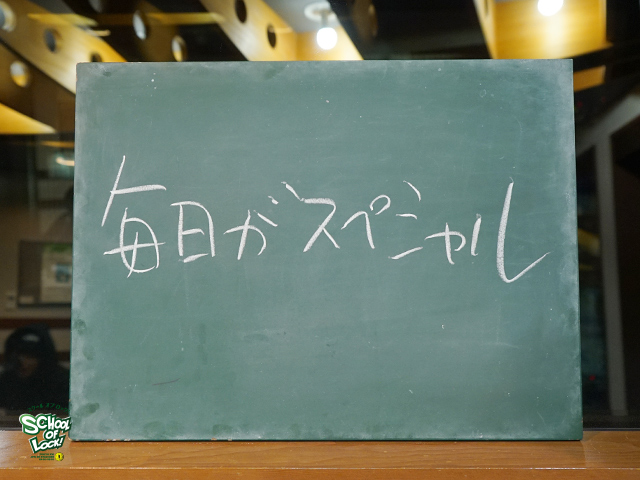 毎日がスペシャル
SCHOOL OF LOCK!